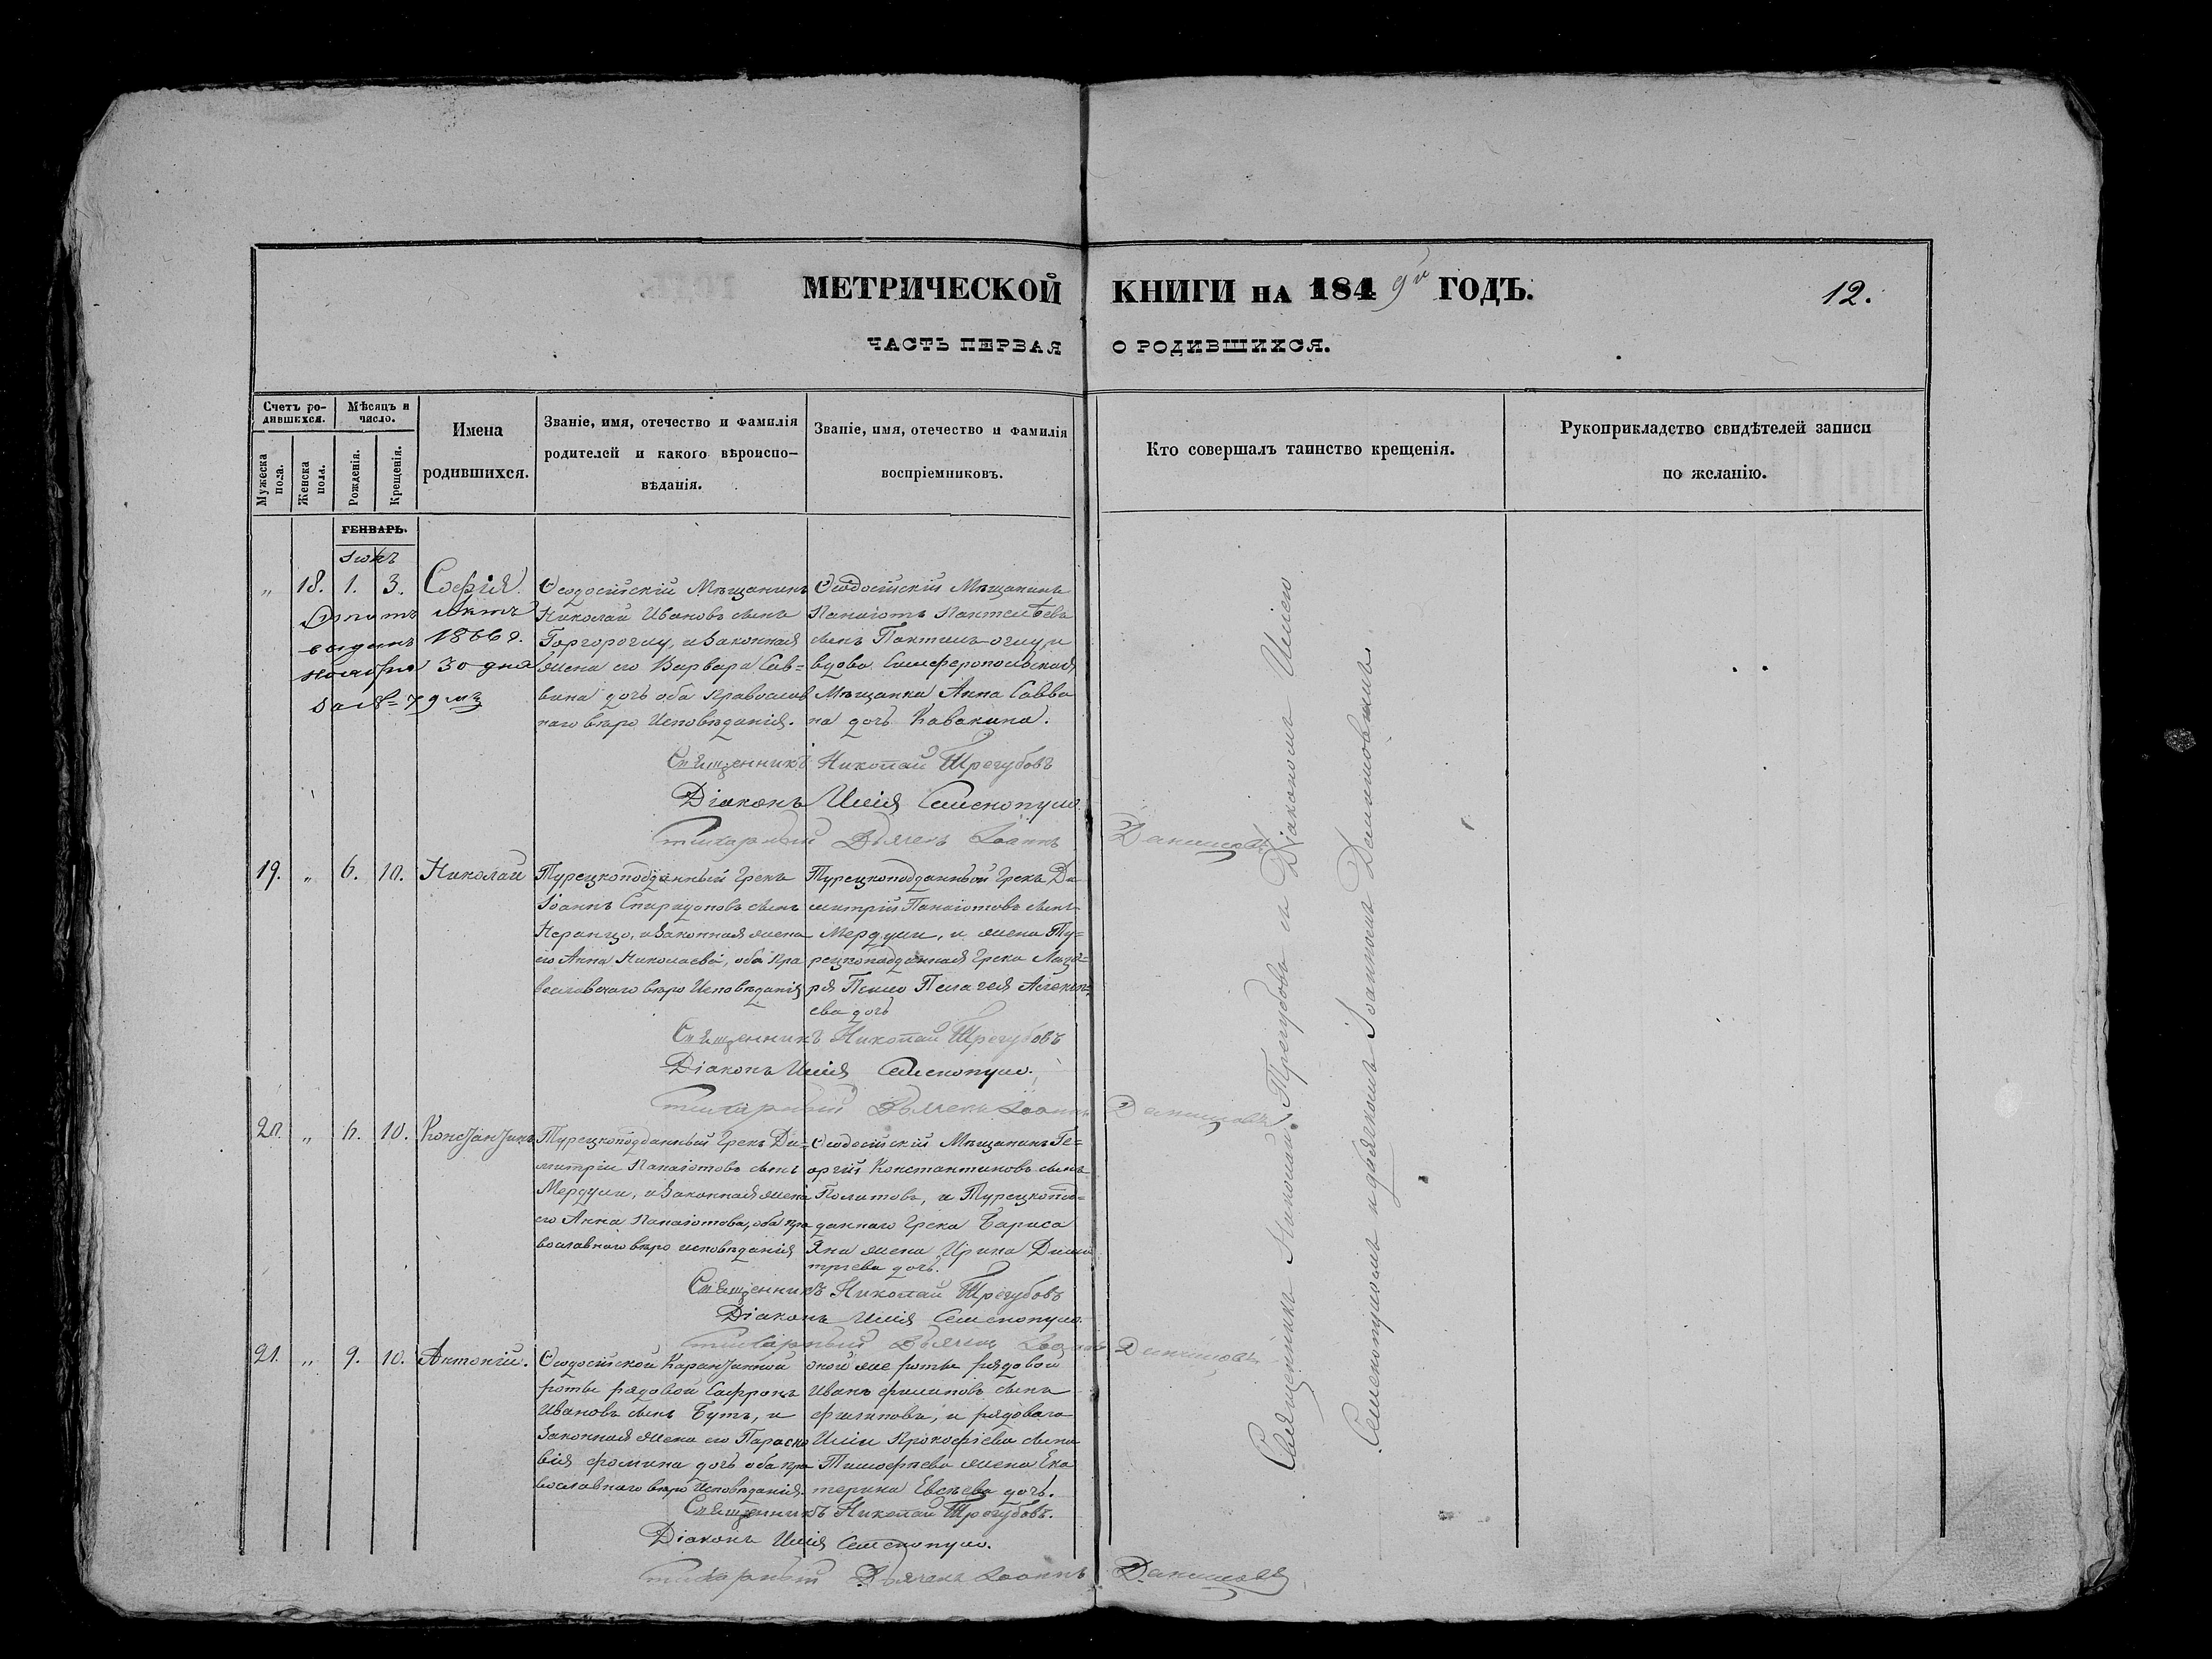 МЕТРИЧЕСКОЙ КНИГИ НА 1849й ГОДЪ.
12.
ЧАСТЬ ПЕРВАЯ О РОДИВШИХСЯ.
Счетъ ро-
дившихся.
Мужеска пола.
Женска пола.
Мѣсяцъ и
число.
Рожденія.
Крещенія.
Имена
родившихся.
Званіе, имя, отечество и фамилія
родителей и какого вѣроиспо-
вѣданія.
Званіе, имя, отечество и фамилія
воспріемниковъ.
Кто совершалъ таинство крещенія.
Рукоприкладство свидѣтелей записи
по желанію.
ГЕНВАРЬ.
" 18. 1. 3. Софія.
актъ
выданъ 1866 г.
ноября 30 дня
Ѳеодосійскій Мѣщанинъ
Николай Ивановъ сынъ
и законная
жена его Варвара Сав-
вина дочь оба православ
наго вѣро Исповѣданія.
Ѳеодосійскій Мѣщанинъ
Панаіотъ
сынъ и
вдова Симферопольская
Мѣщанка Анна Савви
на дочь Кавакина.
Священникъ Николай Трегубовъ
Діаконъ Илія Семенопуло.
Стихарный Дьячекъ Іоаннъ
19. " 6. 10. Николай
Турецкоподданный Грекъ
Іоаннъ Спиридоновъ сынъ
и законная жена
его Анна Николаева, оба пра
вославнаго вѣро Исповѣданія
Турецкоподданный Грекъ Ди
митрій Панаіотовъ сынъ
Мердули, и жена Ту=
рецкоподданная Грека Лаза=
ря Пелагея
ева дочь
Священникъ Николай Трегубовъ
Діаконъ Илія Семенопуло.
Стихарный Дьячекъ Іоаннъ
20. " 6. 10. Константинъ
Турецкоподданный Грекъ Ди=
митрій Панаіотовъ сынъ
Мердули, и законная жена
его Анна Панаіотова, оба пра
вославнаго вѣро исповѣданія
Ѳеодосійскій Мѣщанинъ Ге=
оргій Константиновъ сынъ
Политовъ, и Турецкопод=
даннаго Грека Бариса
Яна жена Ирина Дими
тріева дочь.
Священникъ Николай Трегубовъ
Діаконъ Илія Семенопуло.
Стихарный Дьячекъ Іоаннъ
21. " 9. 10. Антоній.
Ѳеодосійской Карантинной
роты рядовой Сафронъ
Ивановъ сынъ Бутъ, и
законная жена его Параске
вія Фомина дочь оба пра
вославнаго вѣро Исповѣданія.
оной же роты рядовой
Иванъ Филиповъ сынъ
Филиповъ, и рядоваго
Иліи Прокофіева сына
Тимофѣева жена Ека
терина Евсѣева дочь.
Священникъ Николай Трегубовъ.
Діаконъ Илія Семенопуло.
Стихарный Дьячекъ Іоаннъ
Священникъ Николай Трегубовъ съ Діакономъ Иліею
Семенопуломъ и дьячкомъ Іоанномъ